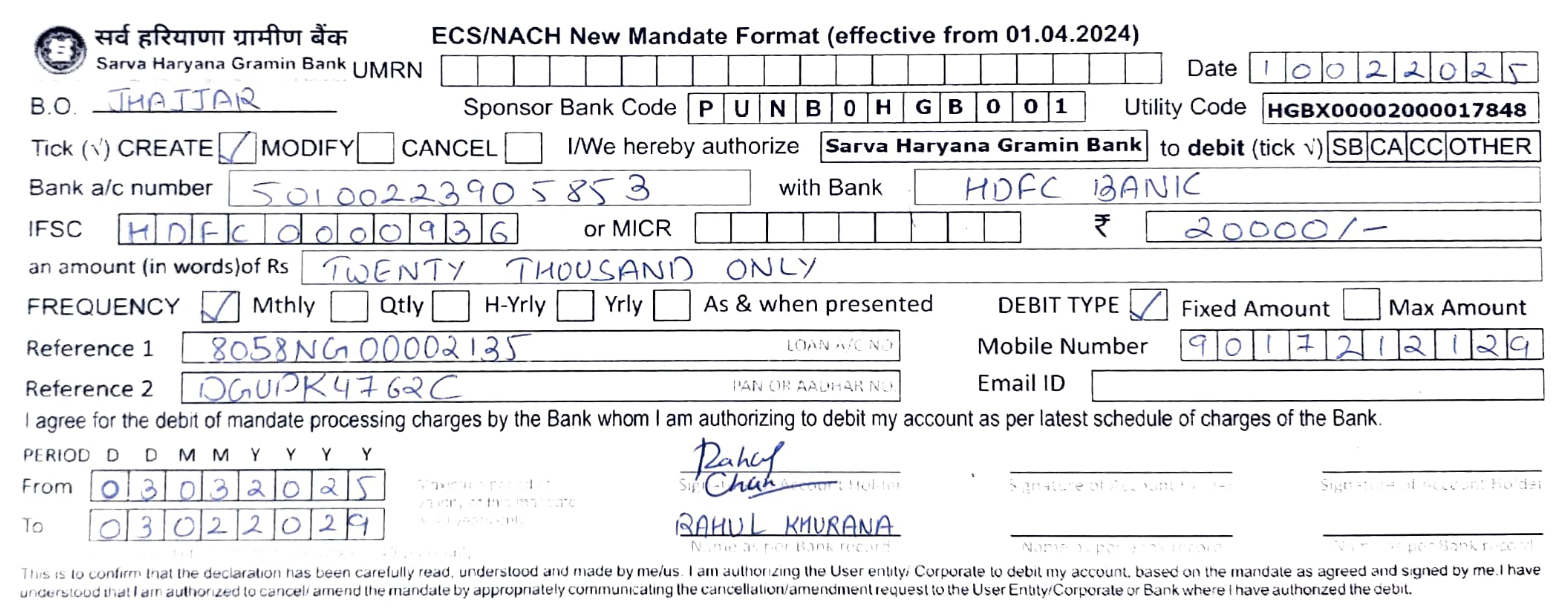 सर्व हरियाणा ग्रामीण बैंक ECS/NACH New Mandate Format (effective from 01.04.2024)
Sarva Haryana Gramin Bank UMRN Date 10022025
B.O. JHAJJAR Sponsor Bank Code PUNB0HGB001 Utility Code HGBX00002000017848
Tick (√) CREATE ✓ MODIFY CANCEL I/We hereby authorize Sarva Haryana Gramin Bank to debit (tick √) SB CA CC OTHER
Bank a/c number 50100223905853 with Bank HDFC BANK
IFSC HDFC0000936 or MICR ₹ 20000/-
an amount (in words)of Rs TWENTY THOUSAND ONLY
FREQUENCY ✓ Mthly Qtly H-Yrly Yrly As & when presented DEBIT TYPE ✓ Fixed Amount Max Amount
Reference 1 8058NG00002135 LOAN A/C NO. Mobile Number 9017212129
Reference 2 DGUPK4762C PAN OR AADHAR NO. Email ID
I agree for the debit of mandate processing charges by the Bank whom I am authorizing to debit my account as per latest schedule of charges of the Bank.
PERIOD D D M M Y Y Y Y
From 03032025 Rahul
Signature of Account Holder Signature of Account Holder
To 03022029 RAHUL KHURANA
Name as per Bank record Name as per Bank record Name as per Bank record
This is to confirm that the declaration has been carefully read, understood and made by me/us. I am authorizing the User entity/ Corporate to debit my account, based on the mandate as agreed and signed by me.I have
understood that I am authorized to cancel/ amend the mandate by appropriately communicating the cancellation/amendment request to the User Entity/Corporate or Bank where I have authorized the debit.